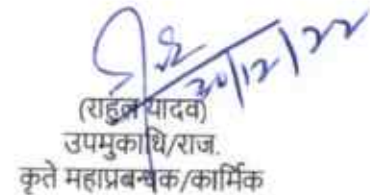 20/12/22
(राहुल यादव)
उपमुकाधि/राज.
कृते महाप्रबन्धक/कार्मिक